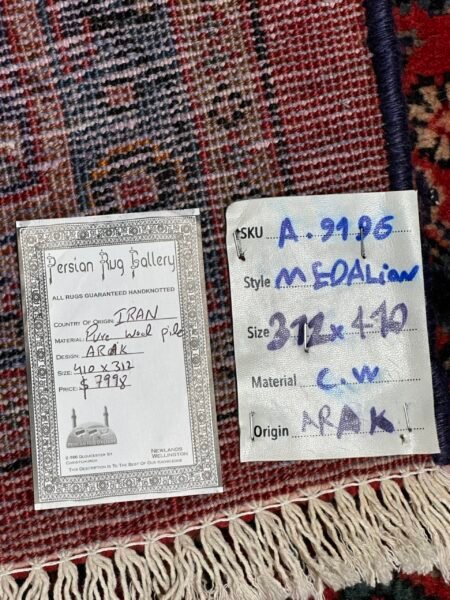 Persian Rug Gallery
ALL RUGS GUARANTEED HANDKNOTTED
COUNTRY OF ORIGIN: IRAN
MATERIAL: Pure Wool Pile
DESIGN: ARAK
SIZE: 410 x 312
PRICE: $7998
GLOUCESTER ST
CHRISTCHURCH
NEWLANDS
WELLINGTON
THIS DESCRIPTION IS TO THE BEST OF OUR KNOWLEDGE
SKU A.9196
Style MEDALiON
Size 312 x 410
Material C.W
Origin ARAK